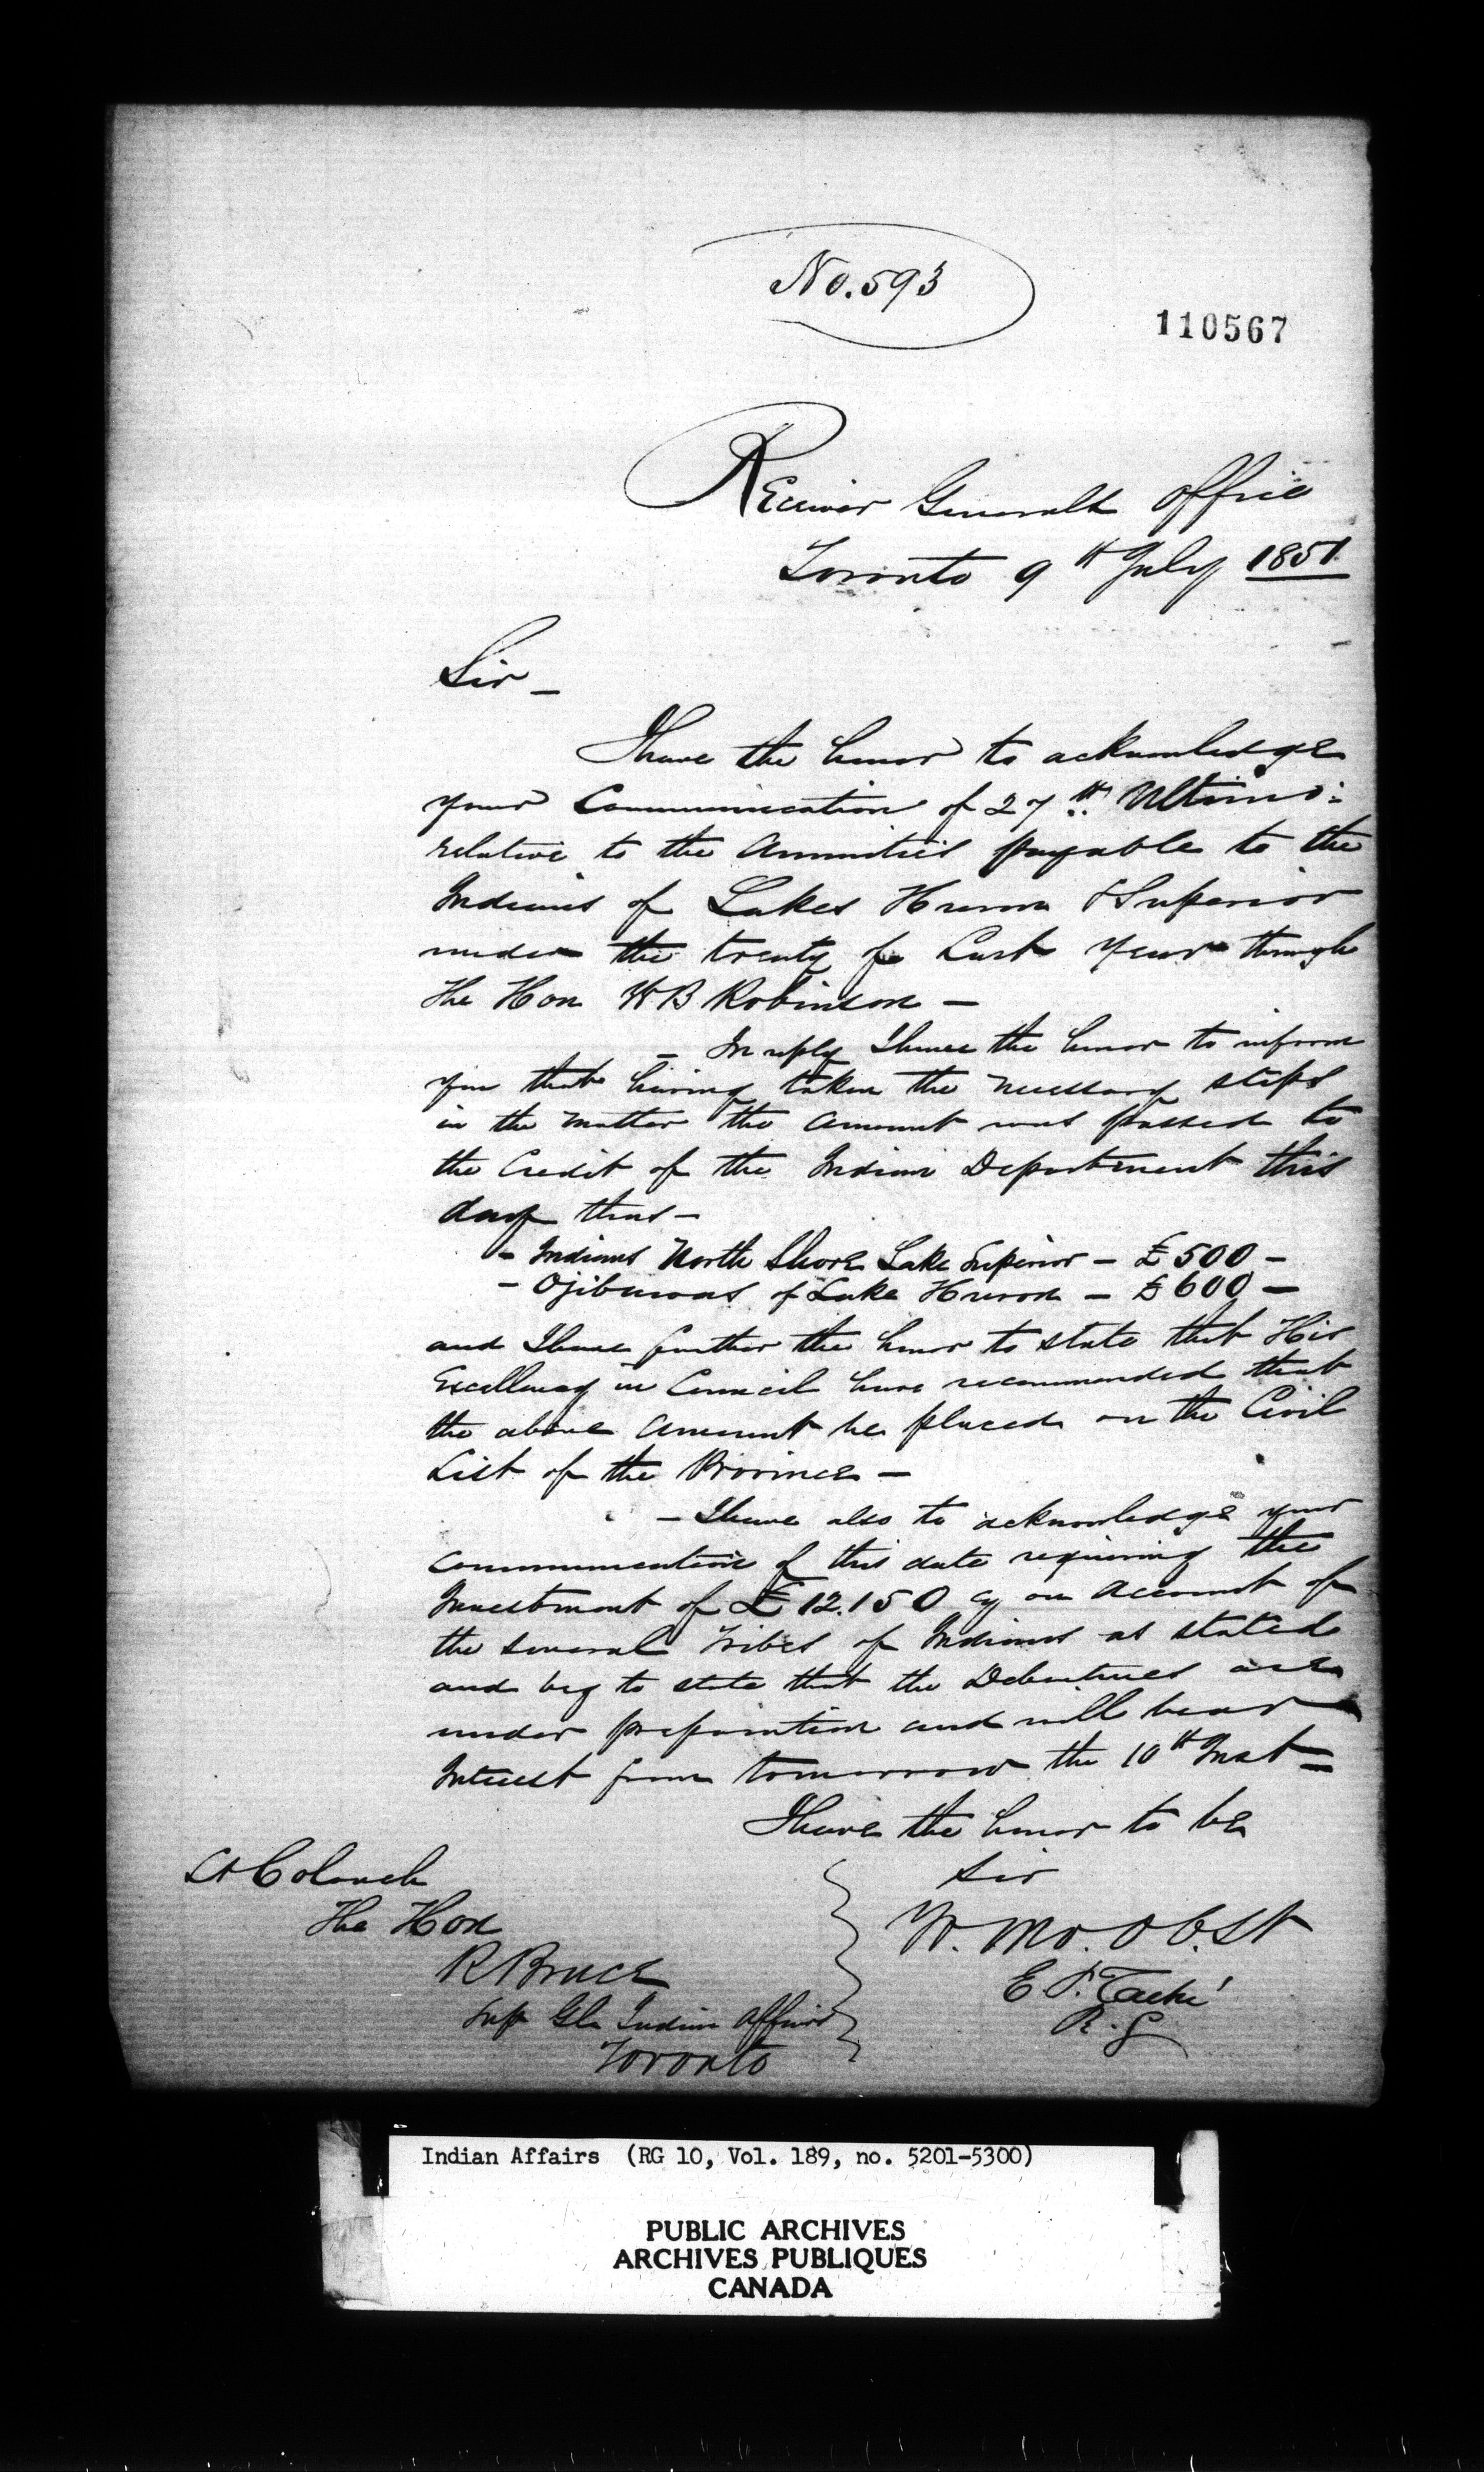 No. 593
110567
Receiver Generals Office
Toronto 9th July 1851.
Sir –
I have the honor to acknowledge
your Communication of 27th Ultimo:
relative to the Annuities payable to the
Indians of Lakes Huron & Superior
under the treaty of Last year through
the Hon W B Robinson –
– In reply I have the honor to inform
you that having taken the necessary steps
in the matter the amount was passed to
the Credit of the Indian Department this
day thus –
– Indians North Shore Lake Superior – £500 –
– Ojibewas of Lake Huron – £600 –
and I have further the honor to state that His
Excellency in Council have recommended that
the above Amount be placed on the Civil
List of the Province –
– I have also to acknowledge your
communication of this date requiring the
Investment of £12.150 cy on Account of
the several Tribes of Indians as stated
and beg to state that the Debentures are
under preparation and will bear
Interest from tomorrow the 10th Inst –
I have the honor to be
Sir
Yr. Mo. Ob. St
E P. Taché
R. G
Lt Colonel
The Hon
R Bruce
Sup Gl Indian Affairs
Toronto
Indian Affairs (RG 10, Vol. 189, no. 5201-5300)
PUBLIC ARCHIVES
ARCHIVES PUBLIQUES
CANADA